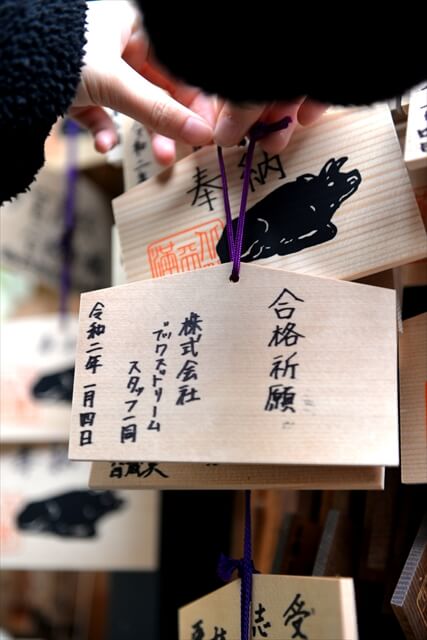 合格祈願
株式会社
ブックスドリーム
スタッフ一同
令和二年一月四日
奉納
令和二
受
志